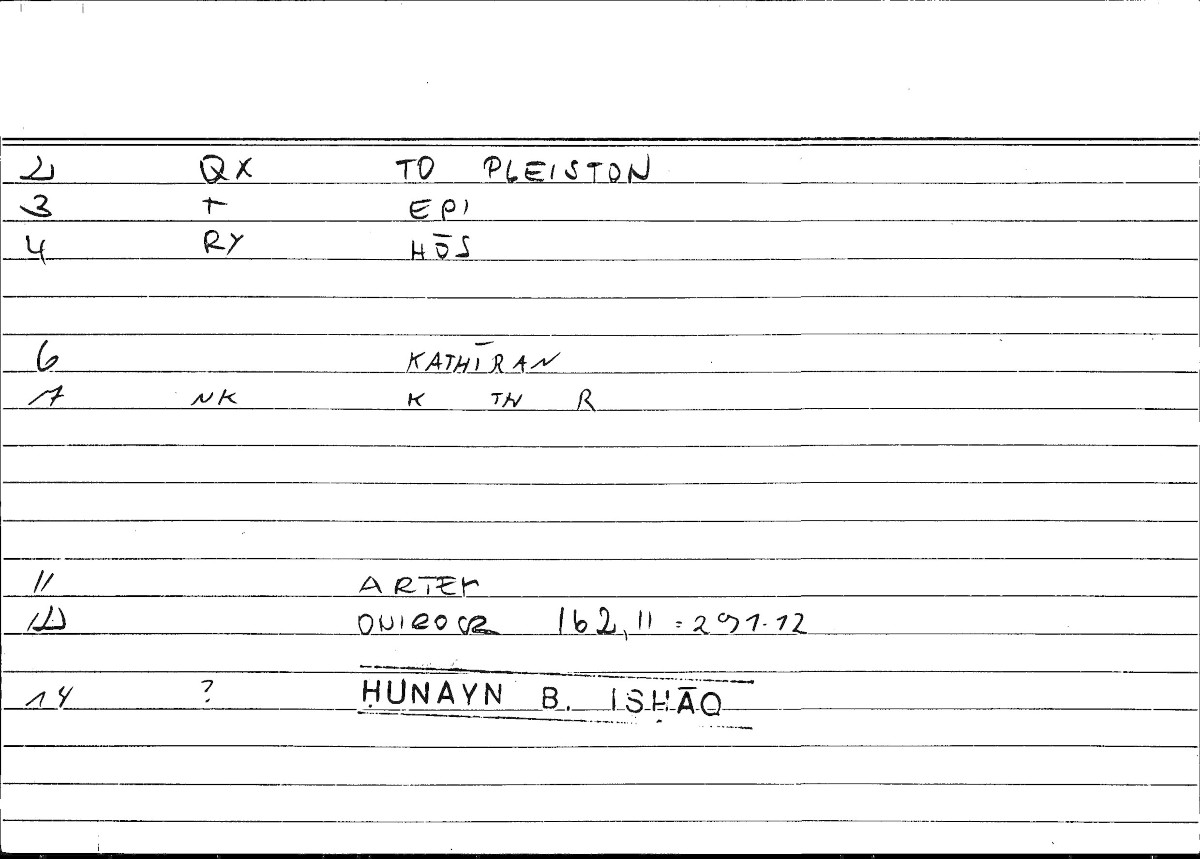 2 QX TO PLEISTON
3 T EPI
4 RY HŌS
6 KATHĪRAN
7 NK K TH R
11 ARTEM
12 ONIROCR 162,11 = 291.12
14 ? ḤUNAYN B. ISḤĀQ